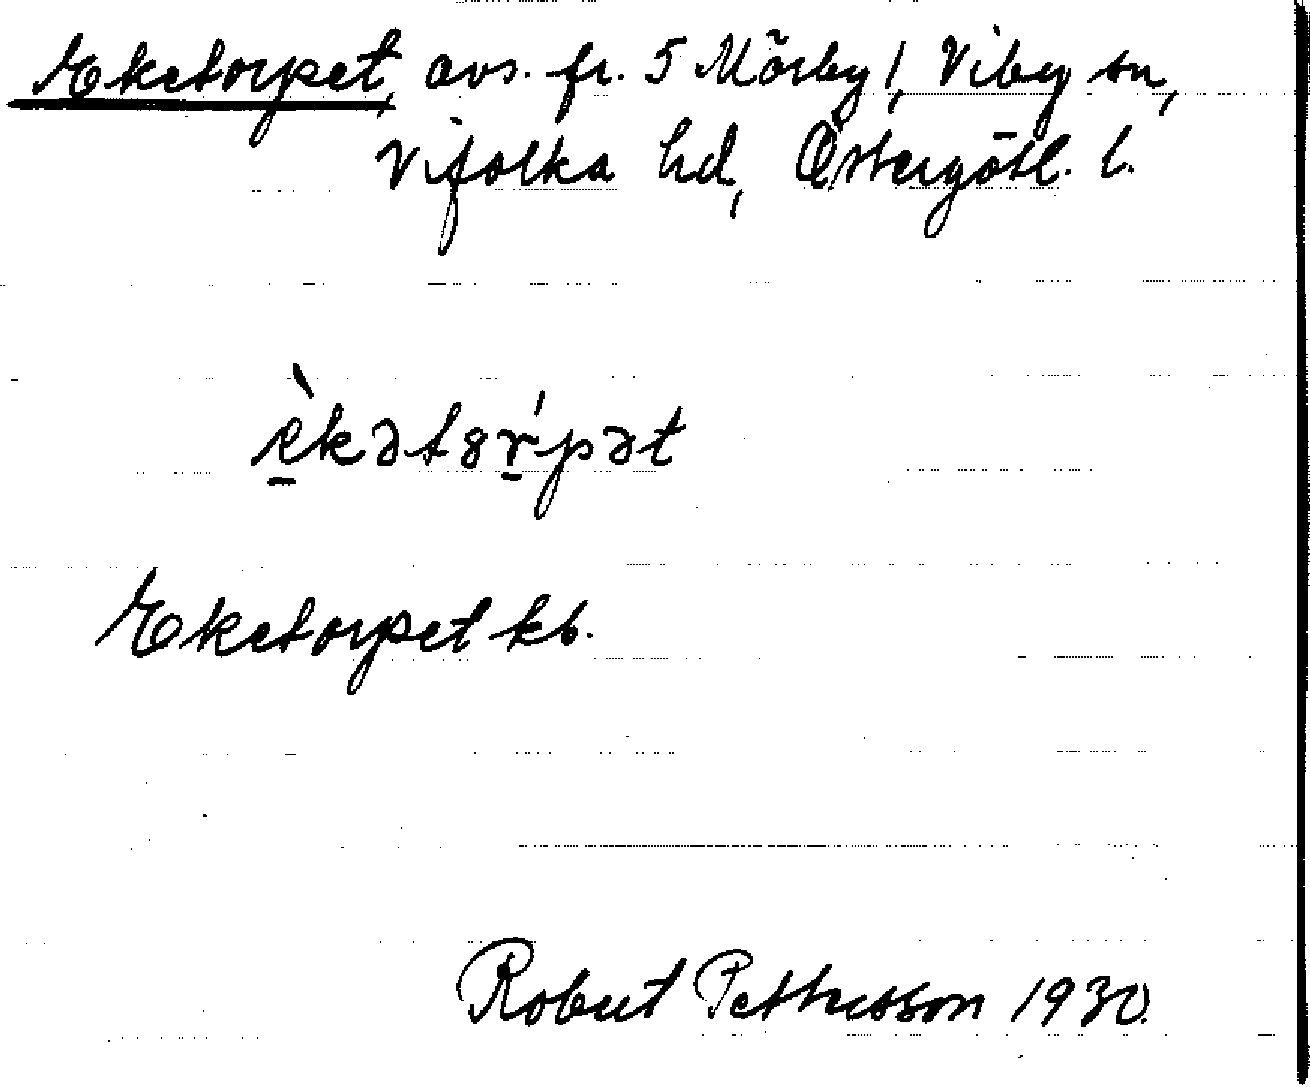 Eketorpet, avs. fr. 5 Mörby /, Viby sn,
Vifolka hd, Östergötl. l.
èkətȣŕ̲pət
Eketorpet kb.
Robert Pettersson 1930.